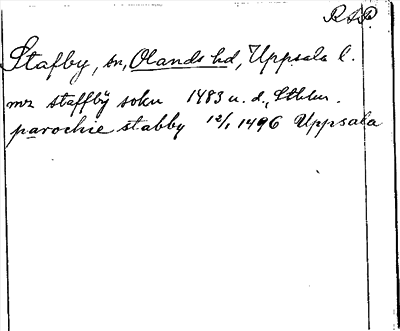 R.A.P.
Stafby, sn, Olands hd, Uppsala l.
mz staffby sokn 1483 u. d., Sthlm.
parochie stabby 12/1 1496 Uppsala